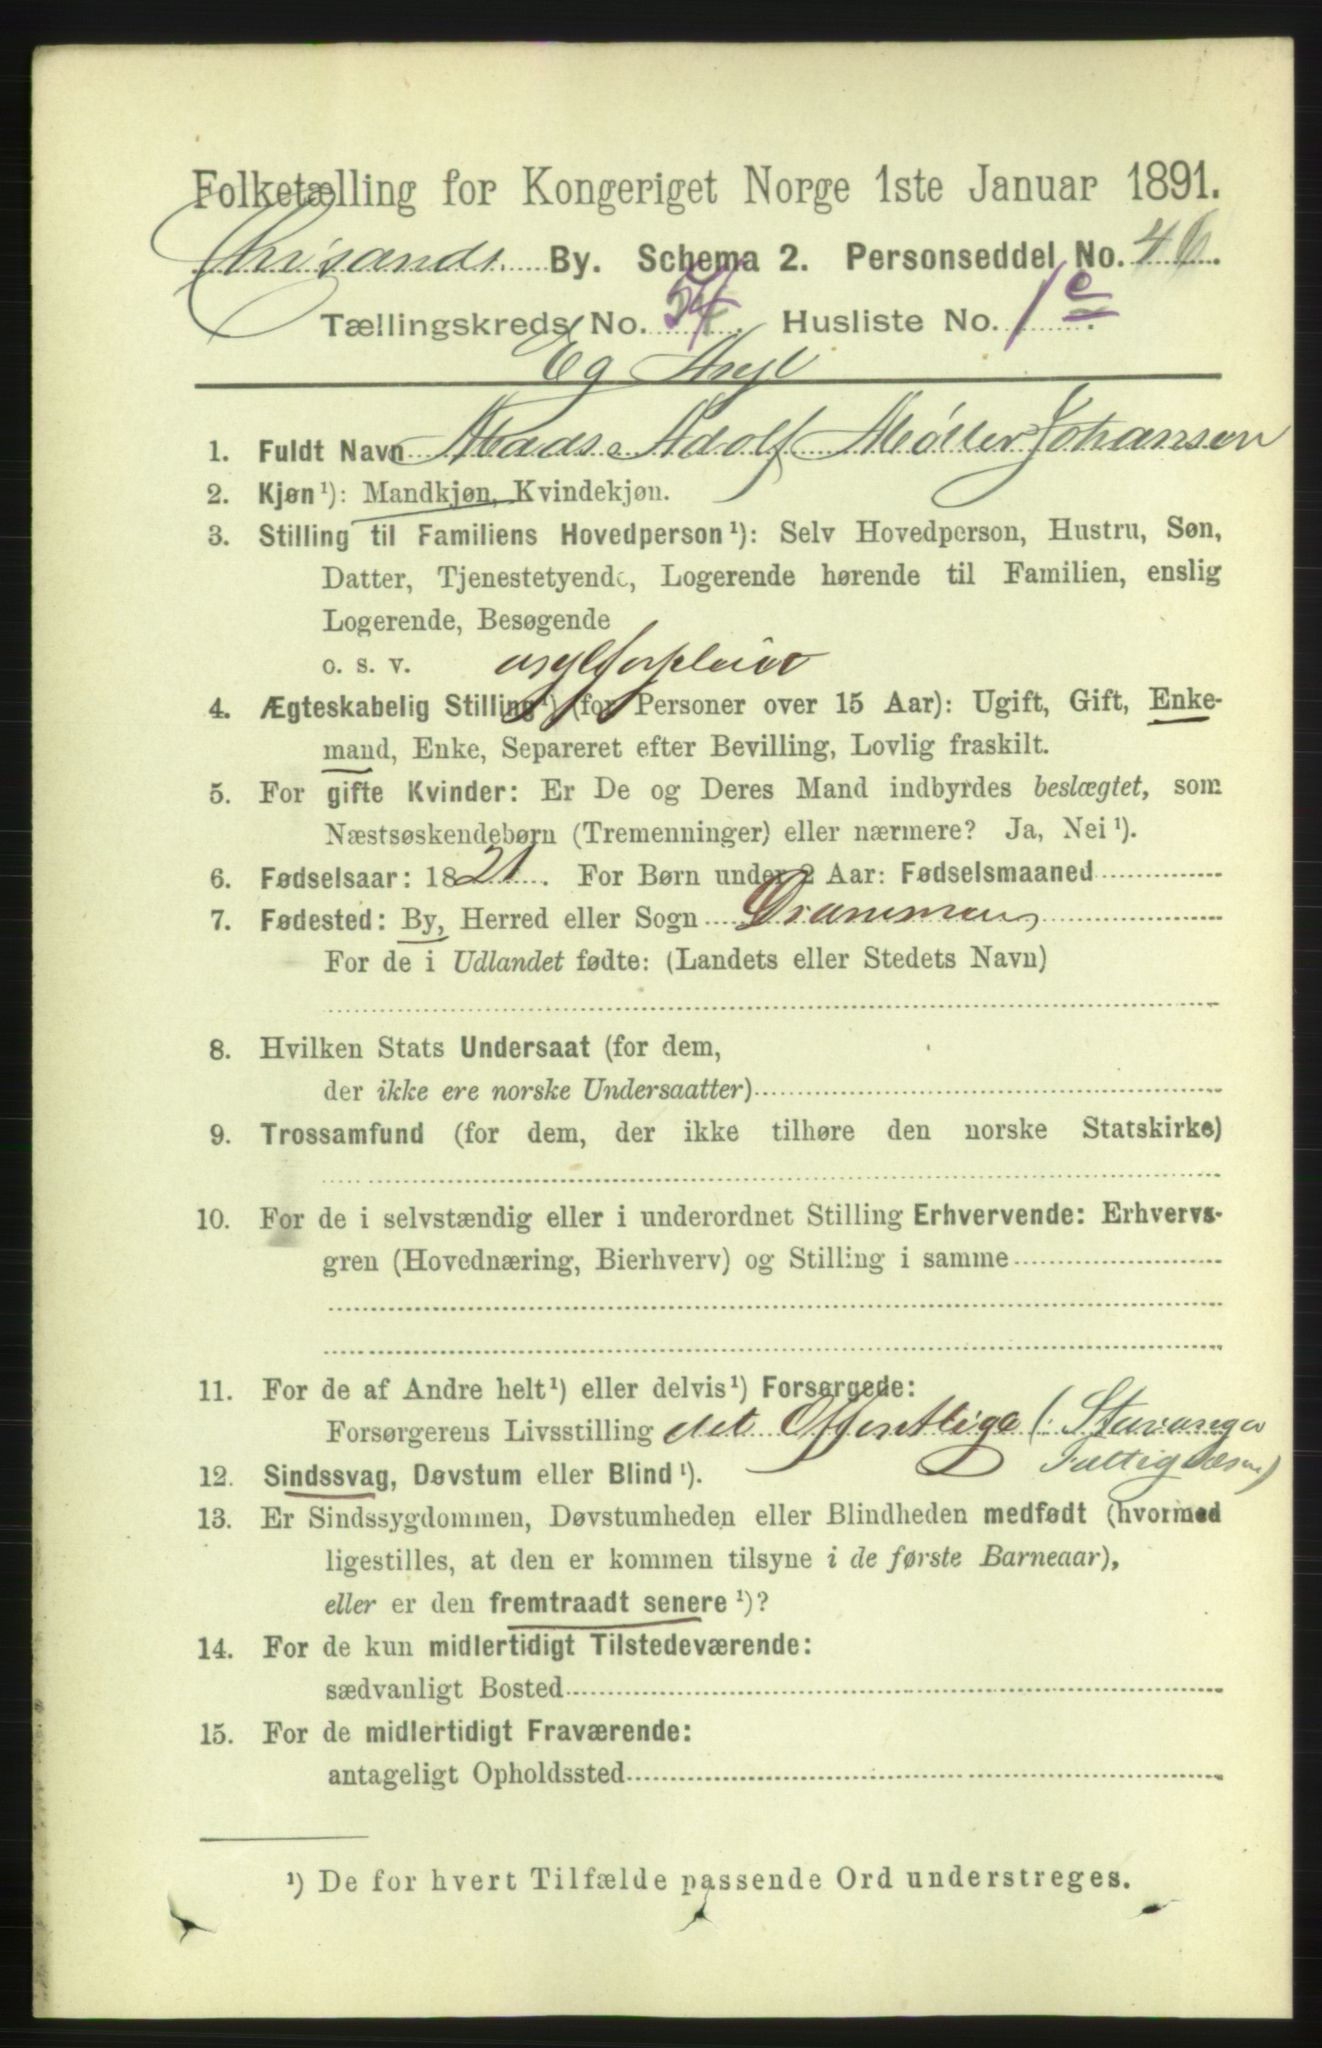 Folketælling for Kongeriget Norge 1ste Januar 1891.
Chrisands By. Schema 2. Personseddel No. 46.
Tællingskreds No. 54. Husliste No. 1c.
Eg Asyl
1. Fuldt Navn Mads Adolf Møller Johansen
2. Kjøn ¹): Mandkjøn, Kvindekjøn.
3. Stilling til Familiens Hovedperson ¹): Selv Hovedperson, Hustru, Søn,
Datter, Tjenestetyende, Logerende hørende til Familien, enslig
Logerende, Besøgende
o. s. v. asylforpleiet
4. Ægteskabelig Stilling ¹) (for Personer over 15 Aar): Ugift, Gift, Enke-
mand, Enke, Separeret efter Bevilling, Lovlig fraskilt.
5. For gifte Kvinder: Er De og Deres Mand indbyrdes beslægtet, som
Næstsøskendebørn (Tremenninger) eller nærmere? Ja, Nei ¹).
6. Fødselsaar: 1821. For Børn under 2 Aar: Fødselsmaaned
7. Fødested: By, Herred eller Sogn Drammen
For de i Udlandet fødte: (Landets eller Stedets Navn)
8. Hvilken Stats Undersaat (for dem,
der ikke ere norske Undersaatter)
9. Trossamfund (for dem, der ikke tilhøre den norske Statskirke)
10. For de i selvstændig eller i underordnet Stilling Erhvervende: Erhvervs-
gren (Hovednæring, Bierhverv) og Stilling i samme
11. For de af Andre helt ¹) eller delvis ¹) Forsørgede:
Forsørgerens Livsstilling det Offentlige (: Stavanger
Fattigvæsen)
12. Sindssvag, Døvstum eller Blind ¹).
13. Er Sindssygdommen, Døvstumheden eller Blindheden medfødt (hvormed
ligestilles, at den er kommen tilsyne i de første Barneaar),
eller er den fremtraadt senere ¹)?
14. For de kun midlertidigt Tilstedeværende:
sædvanligt Bosted
15. For de midlertidigt Fraværende:
antageligt Opholdssted
¹) De for hvert Tilfælde passende Ord understreges.